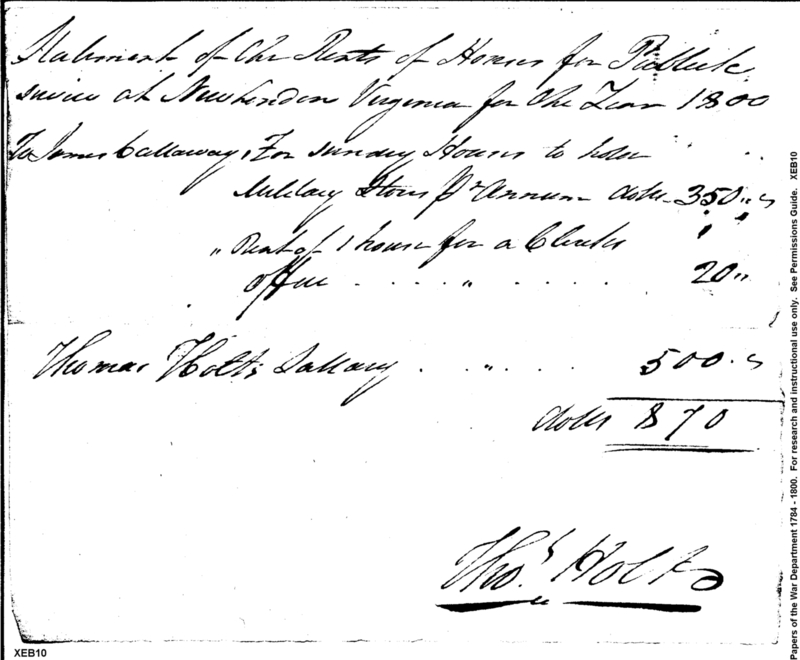 Statement of the Rents of Houses for Publick
service at New London Virginia for the Year 1800
To James Callaway, For sundry Houses to hold
Military Stores pr Annum dolls 350 "
" Rent of 1 house for a Clerks
office . . . . " . . . . 20 "
Thomas Holts Sallary . . " . . 500 . "
dolls 870
Thos. Holt
XEB10
Papers of the War Department 1784 - 1800. For research and instructional use only. See Permissions Guide. XEB10